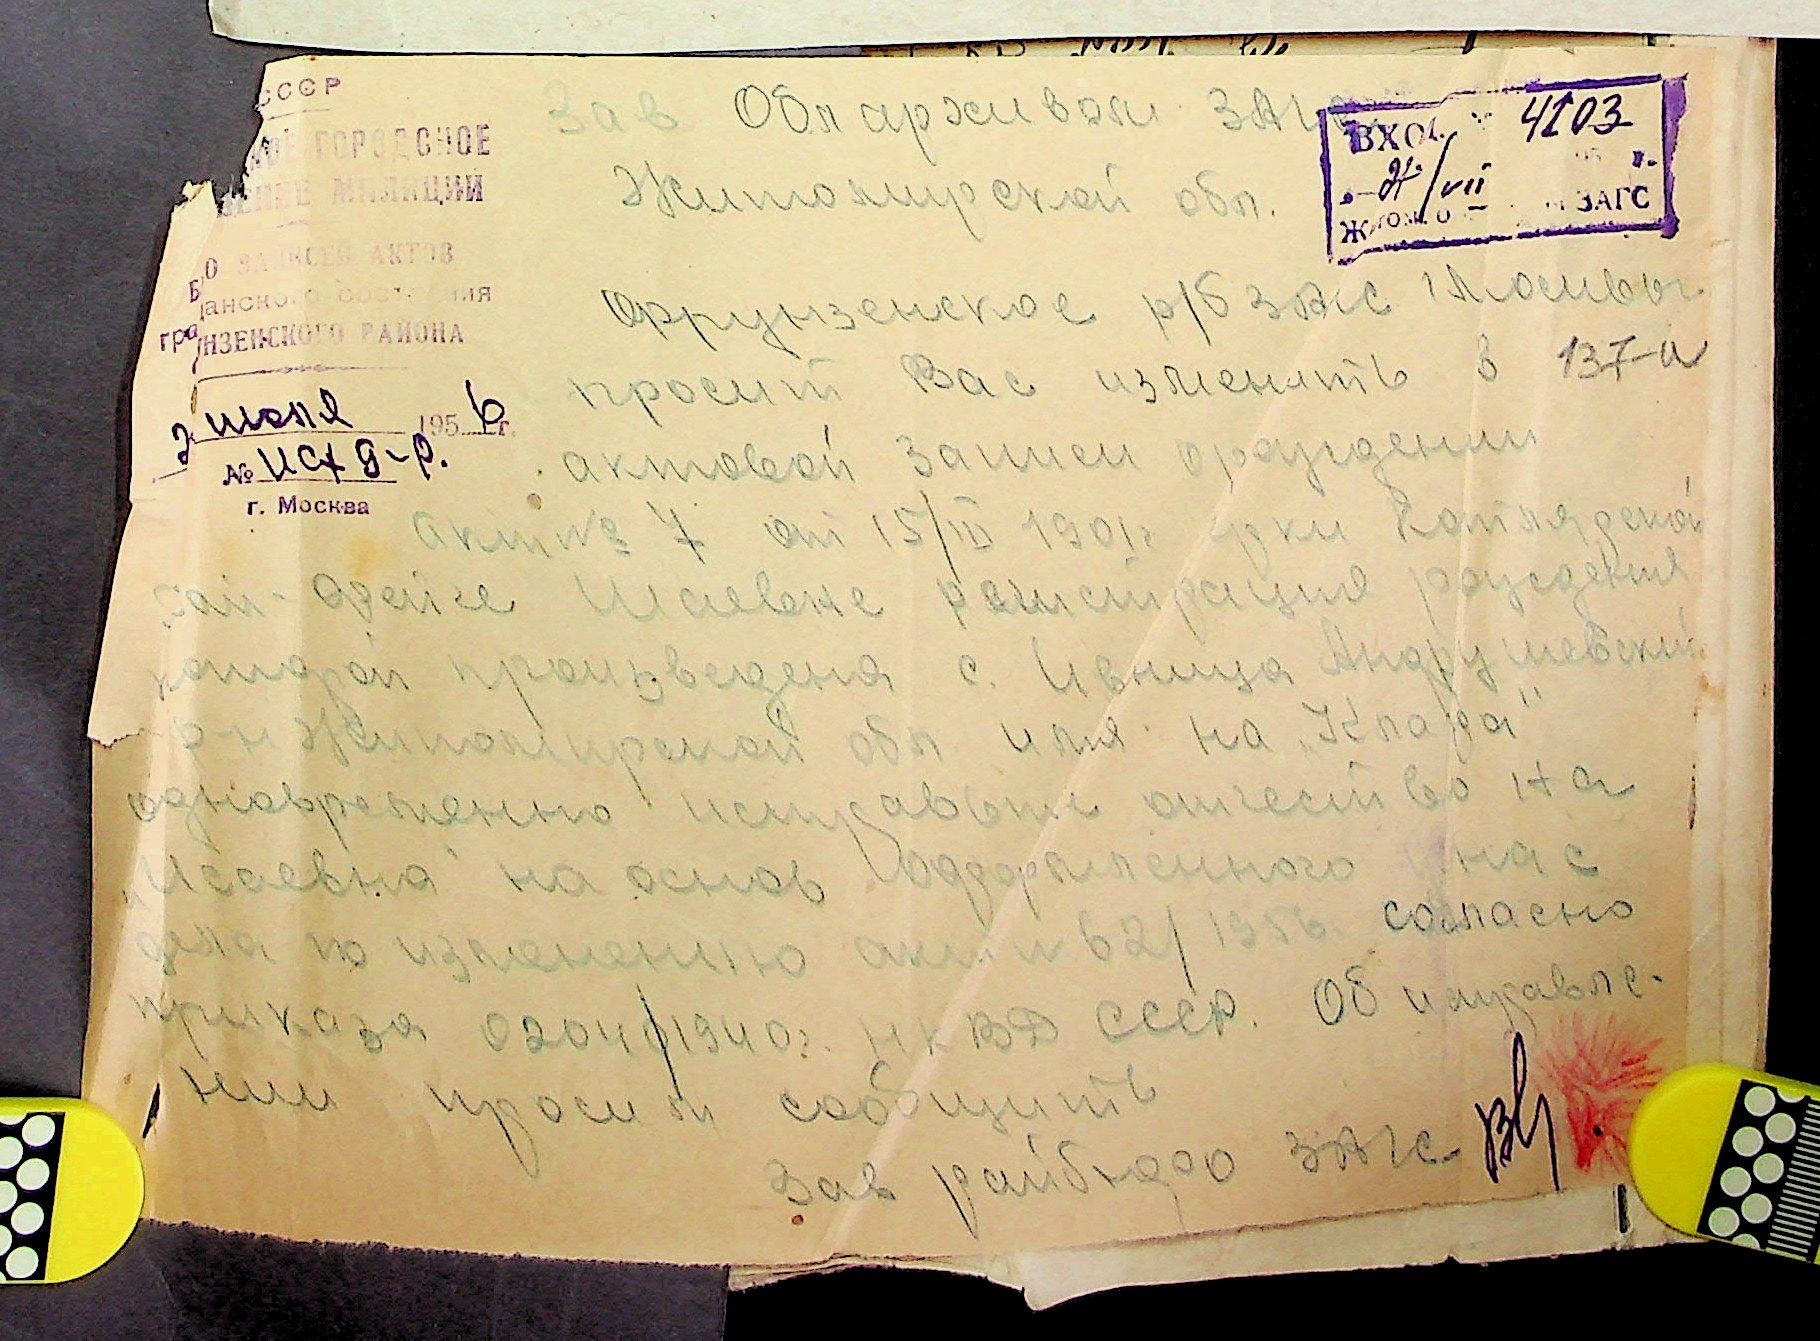 СССР
ГОРОДСКОЕ
МИЛИЦИИ
БЮРО ЗАПИСЕЙ АКТОВ
гражданского состояния
ФРУНЗЕНСКОГО РАЙОНА
2 июля 1956 г.
№ исх д-р.
г. Москва
ВХОД № 4103
„24“/VII 195 г.
ЗАГС
Зав Облархивом ЗАГС
Житомирской обл.
Фрунзенское р/б ЗАГС г Москвы
просит Вас изменить в
актовой записи о рождении
Акт № 7 от 15/III 1901г гр-ки Котлярской
Исаевне регистрация рождения
которой произведена с. Ивница Андрушевский
р-н Житомирской обл. имя на „Клара“
одновременно исправьте отчество на
„Исаевна“ на основ оформленного у нас
дела по изменению акт № 62/1956 согласно
приказа 0204/1940г. НКВД СССР. Об исправле-
нии просим сообщить
Зав райбюро ЗАГС